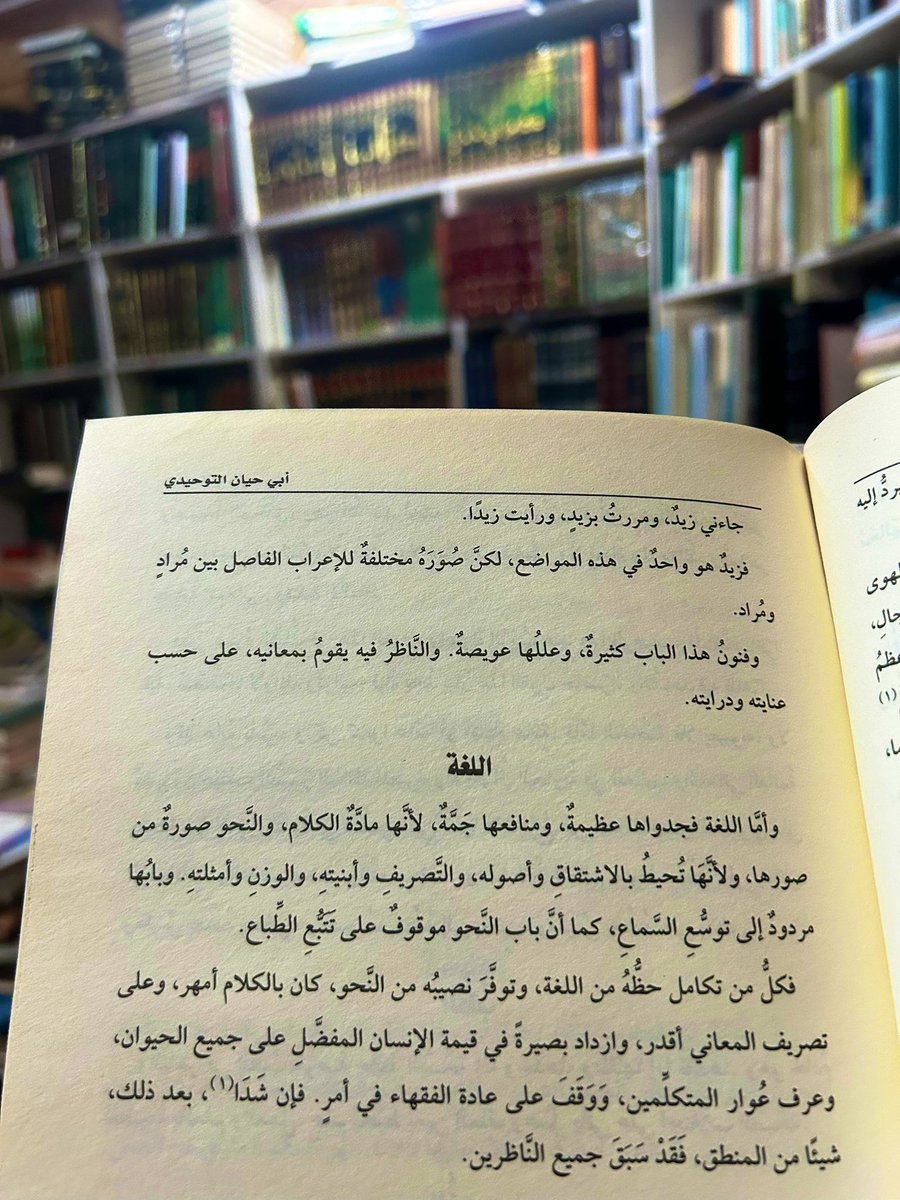 أبي حيان التوحيدي
جاءني زيدٌ، ومررتُ بزيدٍ، ورأيت زيدًا.
فزيدٌ هو واحدٌ في هذه المواضع، لكنَّ صُوَرَهُ مختلفةٌ للإعراب الفاصل بين مُرادٍ
ومُراد.
وفنونُ هذا الباب كثيرةٌ، وعللُها عويصةٌ. والنَّاظرُ فيه يقومُ بمعانيه، على حسب
عنايته ودرايته.
اللغة
وأمَّا اللغة فجدواها عظيمةٌ، ومنافعها جَمَّةٌ، لأنَّها مادَّةٌ الكلام، والنَّحو صورةٌ من
صورها، ولأنَّهَا تُحيطُ بالاشتقاقِ وأصوله، والتَّصريفِ وأبنيتهِ، والوزنِ وأمثلتهِ. وبابُها
مردودٌ إلى توسُّعِ السَّماعِ، كما أنَّ باب النَّحو موقوفٌ على تَتَبُّعِ الطِّباع.
فكلُّ من تكامل حظُّهُ من اللغة، وتوفَّرَ نصيبُه من النَّحو، كان بالكلام أمهر، وعلى
تصريف المعاني أقدر، وازداد بصيرةً في قيمة الإنسان المفضَّلِ على جميع الحيوان،
وعرف عُوار المتكلِّمين، وَوَقَفَ على عادة الفقهاء في أمرٍ. فإن شَدَا(١)، بعد ذلك،
شيئًا من المنطق، فَقَدْ سَبَقَ جميع النَّاظرين.
إليه
(١)